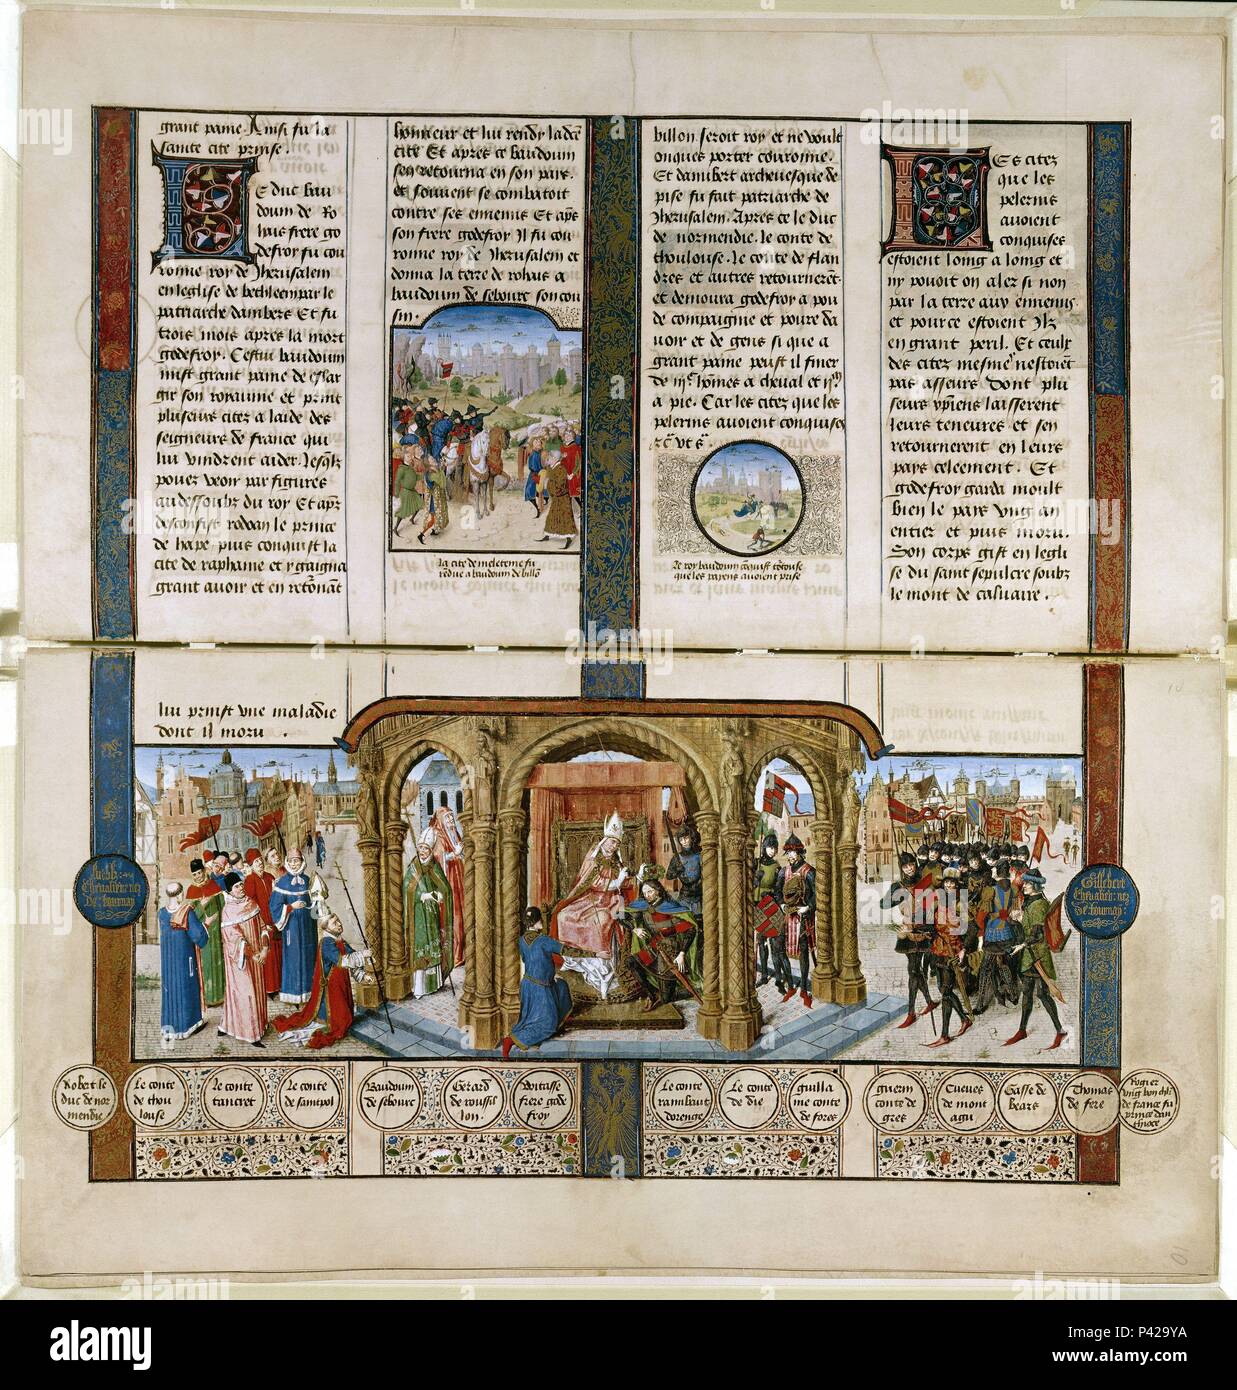 grant paine. Ainsi fu la
sainte cite prinse.
E duc bau
doum de Ro
hais frere go
defroy fu cou
ronne roy de Jherusalem
en leglise de bethleem par le
patriarche dambert Et fu
trois mois apres la mort
godefroy. Cestui baudoum
mist grant paine de eslar
gir son royaume et print
pluseurs citez a laide des
seigneurs de france qui
lui vindrent aider.
pouez veoir par figures
au dessoubz du roy Et apres
desconfist le prince
de hape puis conquist la
cite de raphanie et y gaigna
grant avoir et en retonant
lui prinst vne maladie
dont il moru.
honneur et lui rendy ladte
cite Et apres ce baudoum
sen retourna en son pays.
et souvent se combatoit
contre ses ennemis Et aps
son frere godefroy Il fu cou
ronne roy de Jherusalem et
donna la terre de rohais a
baudoum de sebourc son cou
sin.
la cite de meleteme fu
rendue a baudoum de billon
billon seroit roy et ne voult
onques porter couronne.
Et dambert archevesque de
pise fu fait patriarche de
Jherusalem. Apres ce le duc
de normendie. le conte de
thoulouse. le conte de flan
dres et autres retournerent
et demoura godefroy a pou
de compaignie et poure da
voir et de gens si que a
grant paine peust il finer
de iijc homes a cheval et ijm
a pie. Car les citez que les
pelerins avoient conquises
Le roy baudoum conquist
que les payens avoient prise
Es citez
que les
pelerins
avoient
conquises
estoient loing a loing et
ny pouoit on aler si non
par la terre aux ennemis
et pource estoient Ilz
en grant peril. Et ceulx
des citez mesmes nestoient
pas asseurs Dont plu
seurs xpiens laisserent
leurs teneures et sen
retournerent en leurs
pays celeement. Et
godefroy garda moult
bien le pays vng an
entier et puis moru.
Son corps gist en legli
se du saint sepulcre soubz
le mont de calvaire.
Chevaliers nez
de tournay
Gillebert
Chevalier nez
de tournay
Robert le
duc de nor
mendie
Le conte
de thou
louse
Le conte
tancret
Le conte
de saintpol
Baudoum
de sebourc
Gerard
de roussil
lon.
Wistasse
frere gode
froy
Le conte
rambaut
dorenge
Le conte
de die
guilla
me conte
de fores
guerin
conte de
gres
Cueves
de mont
agu
Gasse de
bears
Thomas
de fere
Rogier
vng bon chlr
de france fu
prince dan
thioce
10
alamy
Image ID: P429YA
www.alamy.com